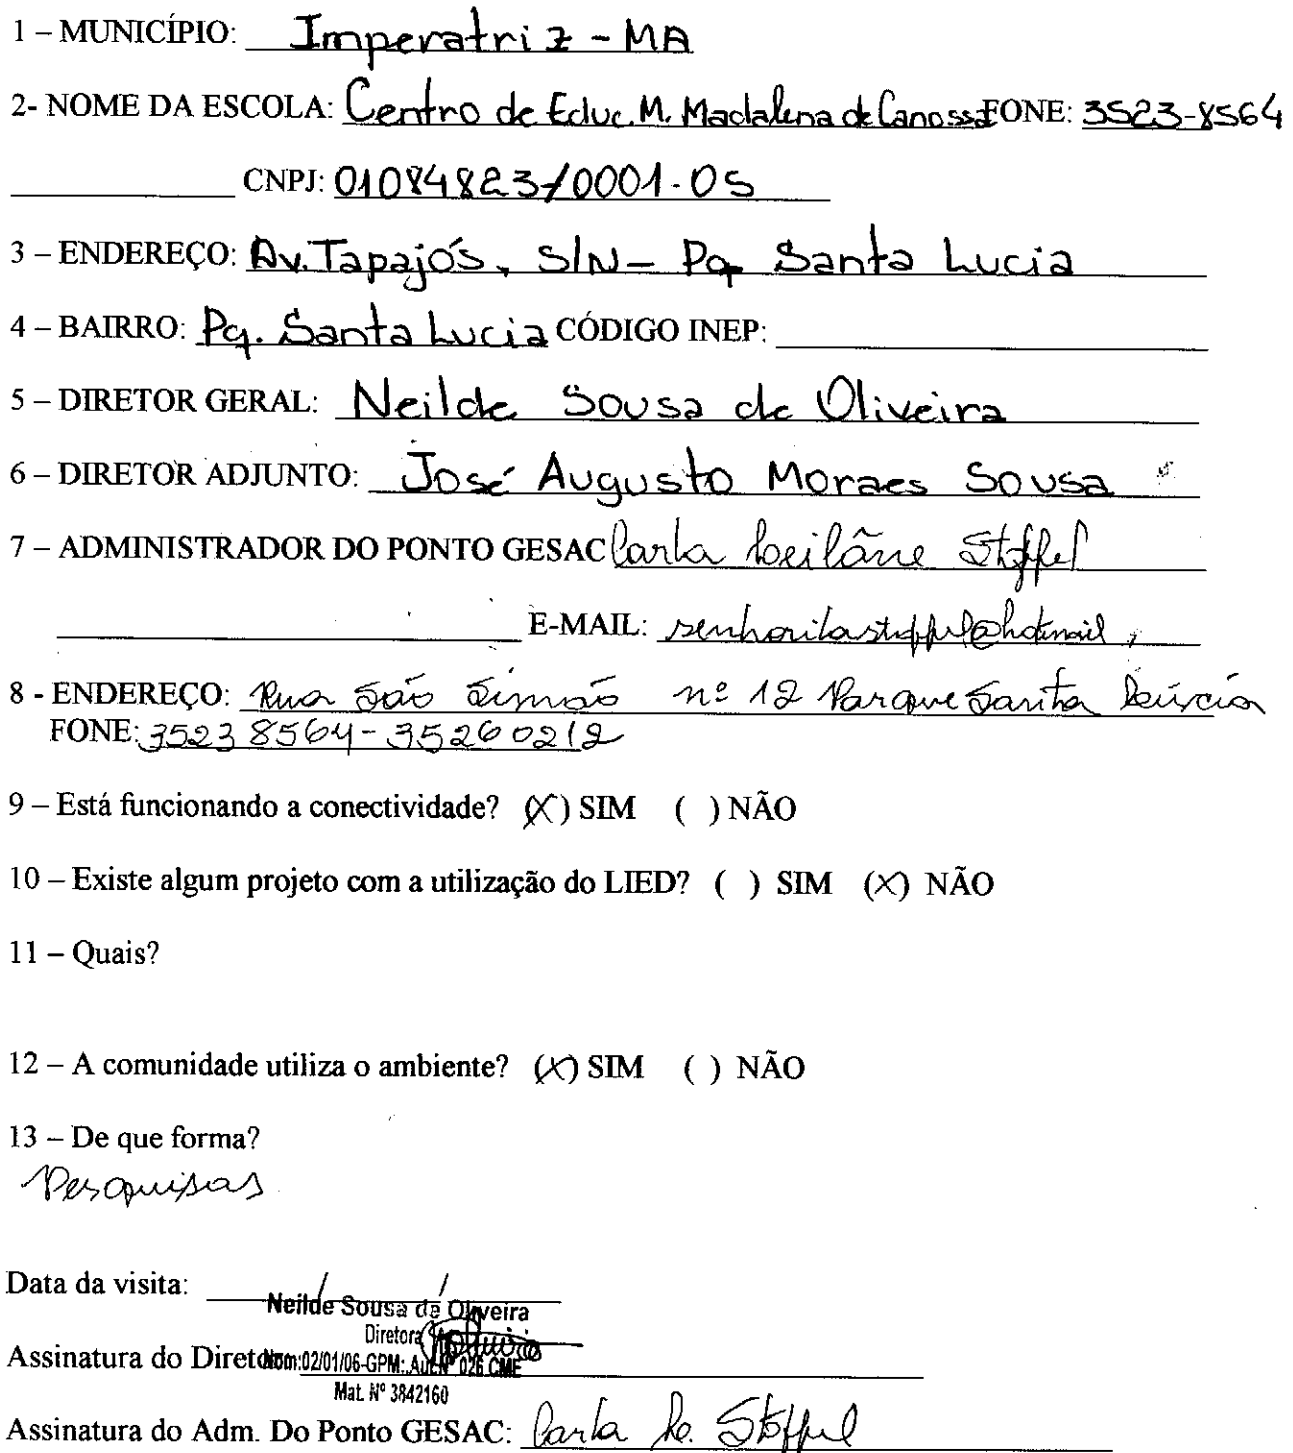 1 – MUNICÍPIO: Imperatriz - MA
2- NOME DA ESCOLA: Centro de Educ. M. Madalena de Canossa FONE: 3523-8564
CNPJ: 01084823/0001-05
3 – ENDEREÇO: Av. Tapajós, S/N – Pq Santa Lucia
4 – BAIRRO: Pq. Santa Lucia CÓDIGO INEP:
5 – DIRETOR GERAL: Neilde Sousa de Oliveira
6 – DIRETOR ADJUNTO: José Augusto Moraes Sousa
7 – ADMINISTRADOR DO PONTO GESAC Carla Leilâne Stoffel
E-MAIL: senhoritastoffel@hotmail,
8 - ENDEREÇO: Rua São Simão nº 12 Parque Santa Lúcia
FONE: 35238564-35260212
9 – Está funcionando a conectividade? (X) SIM ( ) NÃO
10 – Existe algum projeto com a utilização do LIED? ( ) SIM (X) NÃO
11 – Quais?
12 – A comunidade utiliza o ambiente? (X) SIM ( ) NÃO
13 – De que forma?
Pesquisas
Data da visita: / /
Neilde Sousa de Oliveira
Diretora
Assinatura do Diretor: Nom:02/01/06-GPM: Aut. Nº 026 CME
Mat. Nº 3842160
Assinatura do Adm. Do Ponto GESAC: Carla Le. Stoffel